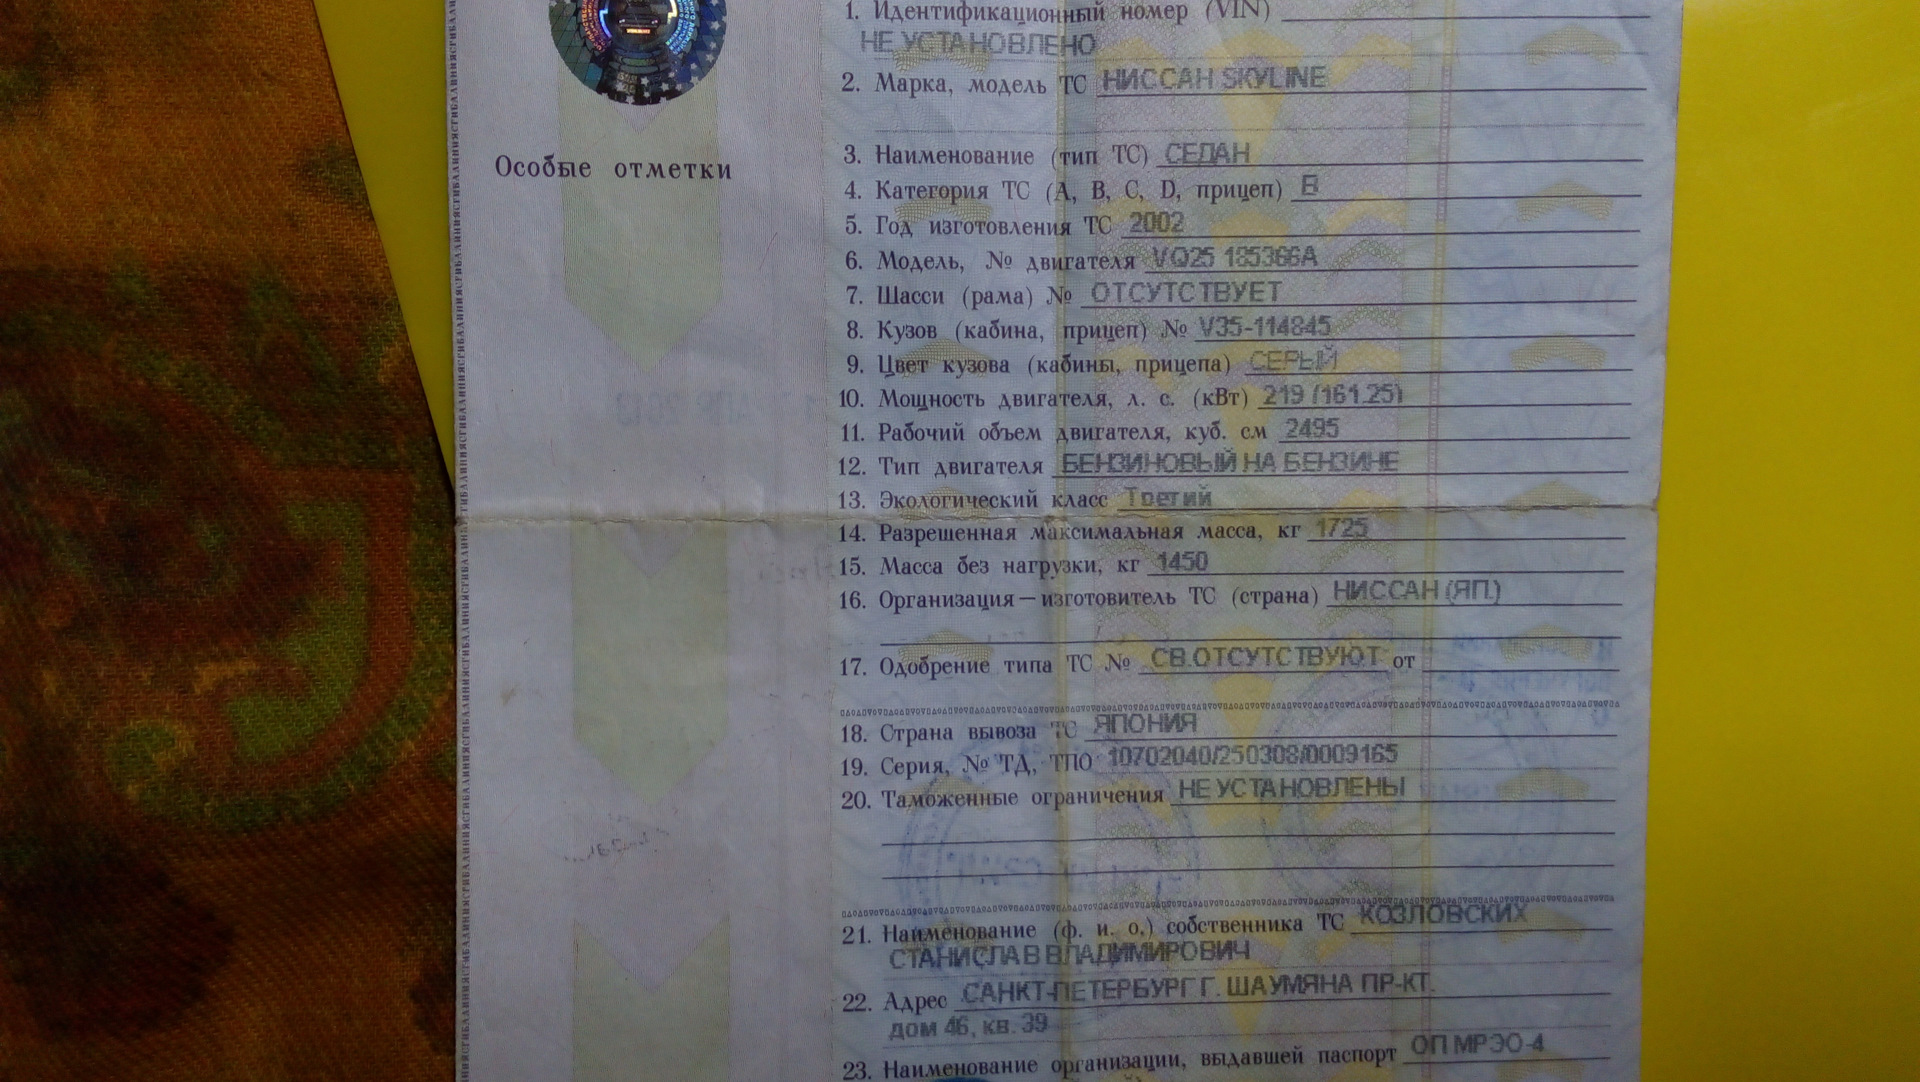 1. Идентификационный номер (VIN)
НЕ УСТАНОВЛЕНО
2. Марка, модель ТС НИССАН SKYLINE
Особые отметки
3. Наименование (тип ТС) СЕДАН
4. Категория ТС (А, В, С, D, прицеп) В
5. Год изготовления ТС 2002
6. Модель, № двигателя VQ25 185366A
7. Шасси (рама) № ОТСУТСТВУЕТ
8. Кузов (кабина, прицеп) № V35-114845
9. Цвет кузова (кабины, прицепа) СЕРЫЙ
10. Мощность двигателя, л. с. (кВт) 219 (161.25)
11. Рабочий объем двигателя, куб. см 2495
12. Тип двигателя БЕНЗИНОВЫЙ НА БЕНЗИНЕ
13. Экологический класс Третий
14. Разрешенная максимальная масса, кг 1725
15. Масса без нагрузки, кг 1450
16. Организация—изготовитель ТС (страна) НИССАН (ЯП.)
17. Одобрение типа ТС № СВ.ОТСУТСТВУЮТ от
18. Страна вывоза ТС ЯПОНИЯ
19. Серия, № ТД, ТПО 10702040/250308/0009165
20. Таможенные ограничения НЕ УСТАНОВЛЕНЫ
21. Наименование (ф. и. о.) собственника ТС КОЗЛОВСКИХ
СТАНИСЛАВ ВЛАДИМИРОВИЧ
22. Адрес САНКТ-ПЕТЕРБУРГ Г. ШАУМЯНА ПР-КТ.
дом 46, кв. 39
23. Наименование организации, выдавшей паспорт ОП МРЭО-4